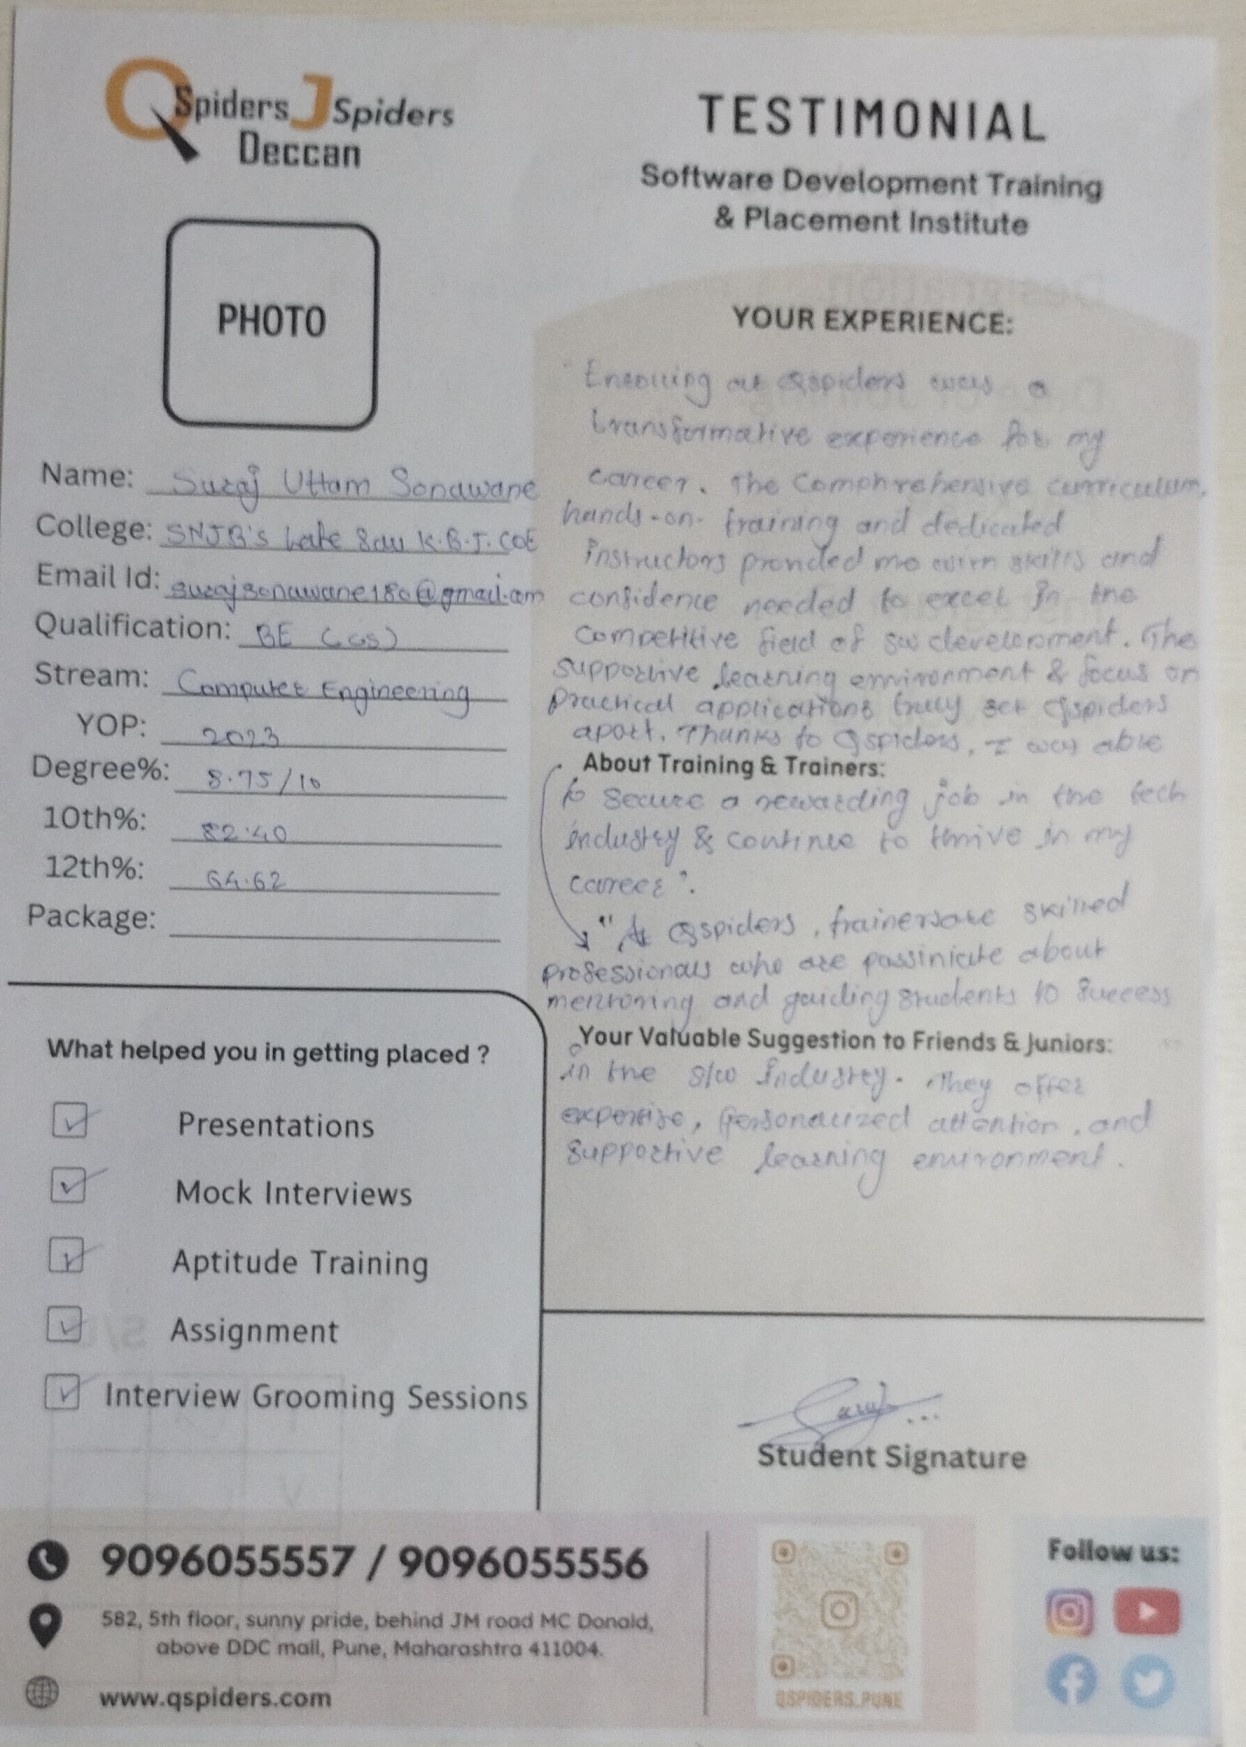 QSpiders JSpiders
Deccan
TESTIMONIAL
Software Development Training
& Placement Institute
PHOTO
Name: Suraj Uttam Sonawane
College: SNJB's Late Sau K.B.J. COE
Email Id: surajsonawane180@gmail.com
Qualification: BE (CGS)
Stream: Computer Engineering
YOP: 2023
Degree%: 8.75/10
10th%: 82.40
12th%: 64.62
Package:
What helped you in getting placed ?
Presentations
Mock Interviews
Aptitude Training
Assignment
Interview Grooming Sessions
YOUR EXPERIENCE:
"Enrolling at Qspiders was a
transformative experience for my
career. The Comphrehensive curriculum,
hands-on- training and dedicated
instructors provided me with skills and
confidence needed to excel in the
competitive field of sw development. The
supportive learning environment & focus on
practical applications truly set Qspiders
apart. Thanks to Qspiders, I was able
About Training & Trainers:
to secure a rewarding job in the tech
industry & continue to thrive in my
career".
"At Qspiders, trainers are skilled
professionals who are passiniate about
mentoring and guiding students to success
Your Valuable Suggestion to Friends & Juniors:
in the s/w industry. They offer
expertise, personalized attention, and
supportive learning environment.
Student Signature
9096055557 / 9096055556
582, 5th floor, sunny pride, behind JM road MC Donald,
above DDC mall, Pune, Maharashtra 411004.
www.qspiders.com
QSPIDERS_PUNE
Follow us: